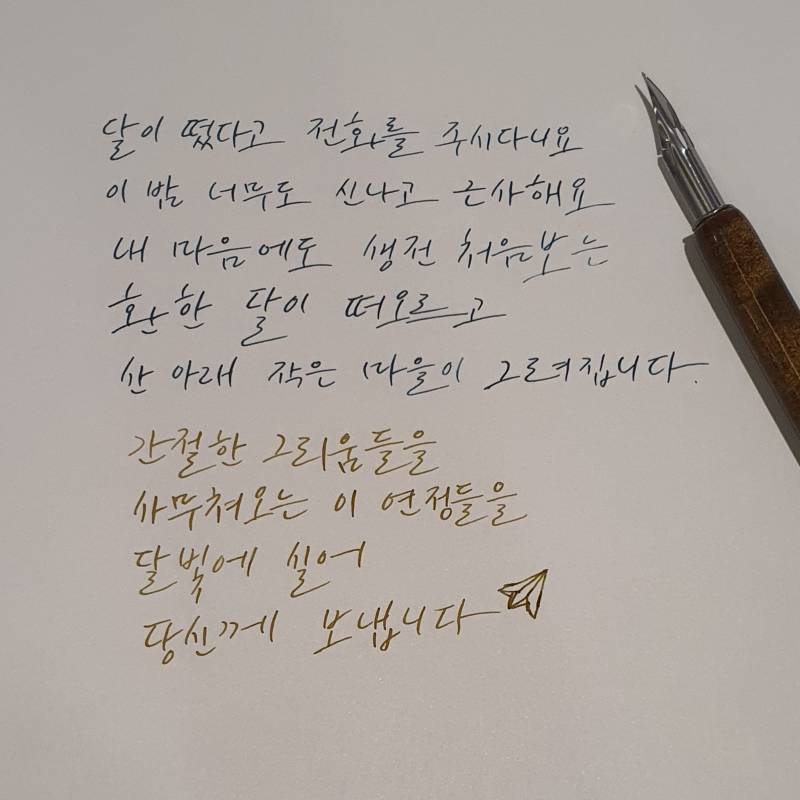 달이 떴다고 전화를 주시다니요
이 밤 너무도 신나고 근사해요
내 마음에도 생전 처음보는
환한 달이 떠오르고
산 아래 작은 마을이 그려집니다.
간절한 그리움들을
사무쳐오는 이 연정들을
달빛에 실어
당신께 보냅니다